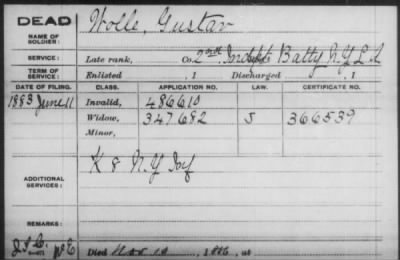 DEAD
NAME OF SOLDIER: Wolle, Gustav
SERVICE: Late rank, Co. 2nd Indpt Batty N.Y.L.A
TERM OF SERVICE: Enlisted , 1 Discharged , 1
DATE OF FILING. CLASS. APPLICATION NO. LAW. CERTIFICATE NO.
1883 June 11 Invalid, 486610
Widow, 347.682 S 366539
Minor,
ADDITIONAL SERVICES: K 8 N.Y Inf
REMARKS:
Died , 1886, at